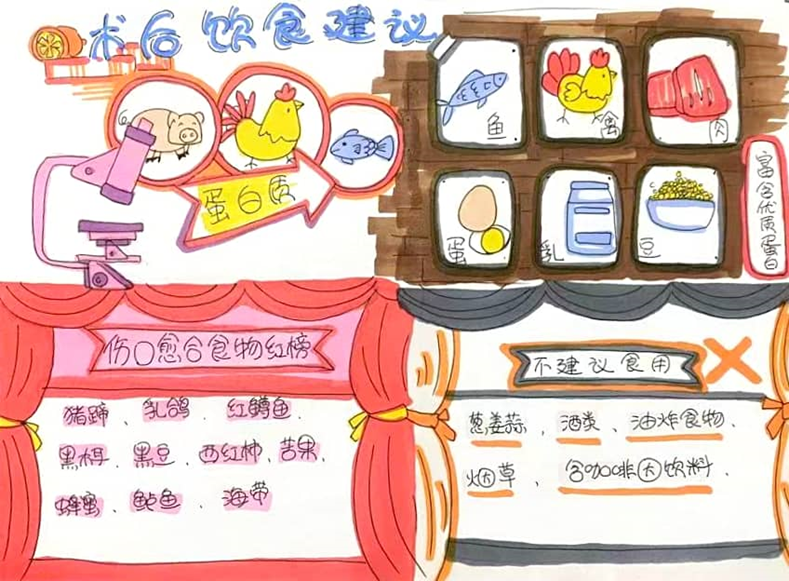 术后饮食建议
蛋白质
鱼
禽
肉
蛋
乳
豆
富含优质蛋白
伤口愈合食物红榜
猪蹄、乳鸽、红鳟鱼
黑木耳、黑豆、西红柿、苦果、
蜂蜜、鲮鱼、海带
不建议食用
葱姜蒜、酒类、油炸食物、
烟草、含咖啡因饮料、